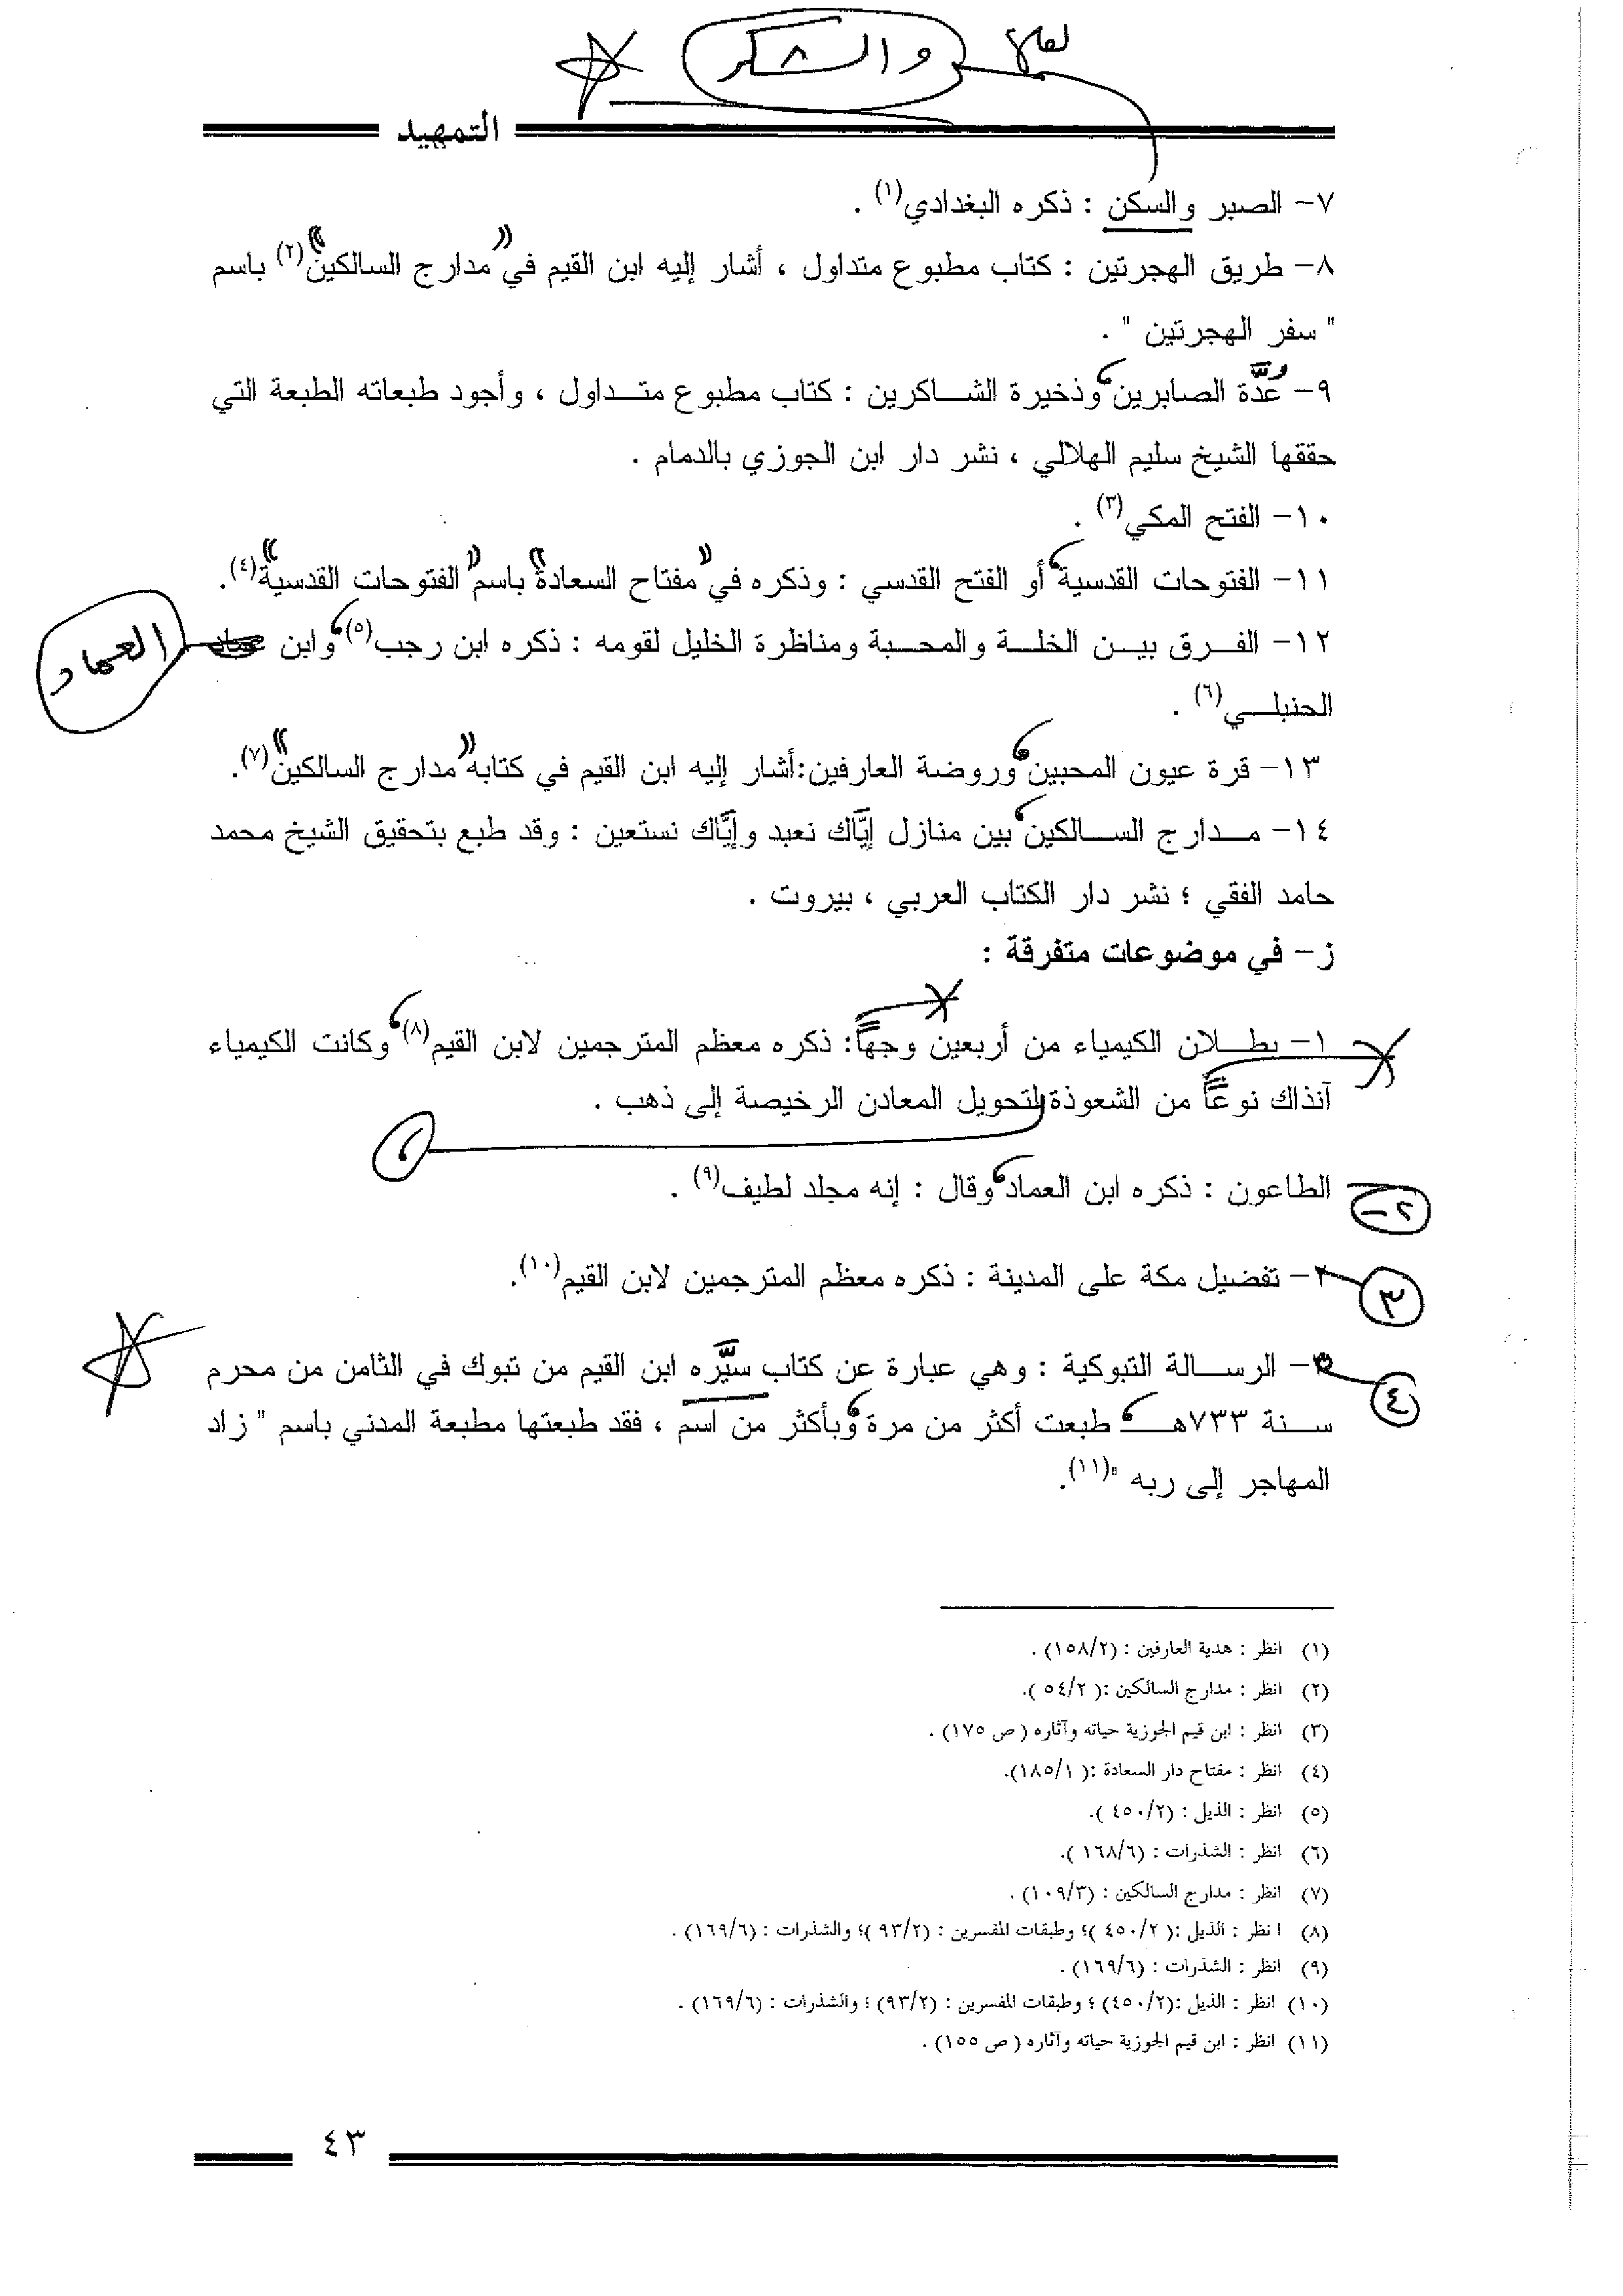 لعله
والشكر
التمهيد
٧- الصبر والسكن : ذكره البغدادي(١) .
٨- طريق الهجرتين : كتاب مطبوع متداول ، أشار إليه ابن القيم في "مدارج السالكين"(٢) باسم
" سفر الهجرتين " .
٩- عُدَّة الصابرين، وذخيرة الشاكرين : كتاب مطبوع متداول ، وأجود طبعاته الطبعة التي
حققها الشيخ سليم الهلالي ، نشر دار ابن الجوزي بالدمام .
١٠- الفتح المكي(٣) .
١١- الفتوحات القدسية، أو الفتح القدسي : وذكره في "مفتاح السعادة" باسم "الفتوحات القدسية"(٤).
١٢- الفرق بين الخلة والمحبة ومناظرة الخليل لقومه : ذكره ابن رجب(٥)، وابن عماد
العماد
الحنبلي(٦) .
١٣- قرة عيون المحبين، وروضة العارفين:أشار إليه ابن القيم في كتابه "مدارج السالكين"(٧).
١٤- مدارج السالكين، بين منازل إيَّاك نعبد وإيَّاك نستعين : وقد طبع بتحقيق الشيخ محمد
حامد الفقي ؛ نشر دار الكتاب العربي ، بيروت .
ز- في موضوعات متفرقة :
١- بطلان الكيمياء من أربعين وجهاً: ذكره معظم المترجمين لابن القيم(٨)، وكانت الكيمياء
آنذاك نوعاً من الشعوذة لتحويل المعادن الرخيصة إلى ذهب .
،
٢- الطاعون : ذكره ابن العماد، وقال : إنه مجلد لطيف(٩) .
٣ ٢- تفضيل مكة على المدينة : ذكره معظم المترجمين لابن القيم(١٠).
٤ ٣- الرسالة التبوكية : وهي عبارة عن كتاب سيَّره ابن القيم من تبوك في الثامن من محرم
سنة ٧٣٣هـ، طبعت أكثر من مرة، وبأكثر من اسم ، فقد طبعتها مطبعة المدني باسم " زاد
المهاجر إلى ربه "(١١).
(١) انظر : هدية العارفين : (١٥٨/٢) .
(٢) انظر : مدارج السالكين :( ٥٤/٢ ).
(٣) انظر : ابن قيم الجوزية حياته وآثاره ( ص ١٧٥) .
(٤) انظر : مفتاح دار السعادة :( ١٨٥/١).
(٥) انظر : الذيل : (٤٥٠/٢ ).
(٦) انظر : الشذرات : (١٦٨/٦ ).
(٧) انظر : مدارج السالكين : (١٠٩/٣) .
(٨) ا نظر : الذيل :( ٤٥٠/٢ )؛ وطبقات المفسرين : (٩٣/٢ )؛ والشذرات : (١٦٩/٦) .
(٩) انظر : الشذرات : (١٦٩/٦) .
(١٠) انظر : الذيل :(٤٥٠/٢) ؛ وطبقات المفسرين : (٩٣/٢) ؛ والشذرات : (١٦٩/٦) .
(١١) انظر : ابن قيم الجوزية حياته وآثاره ( ص ١٥٥) .
٤٣